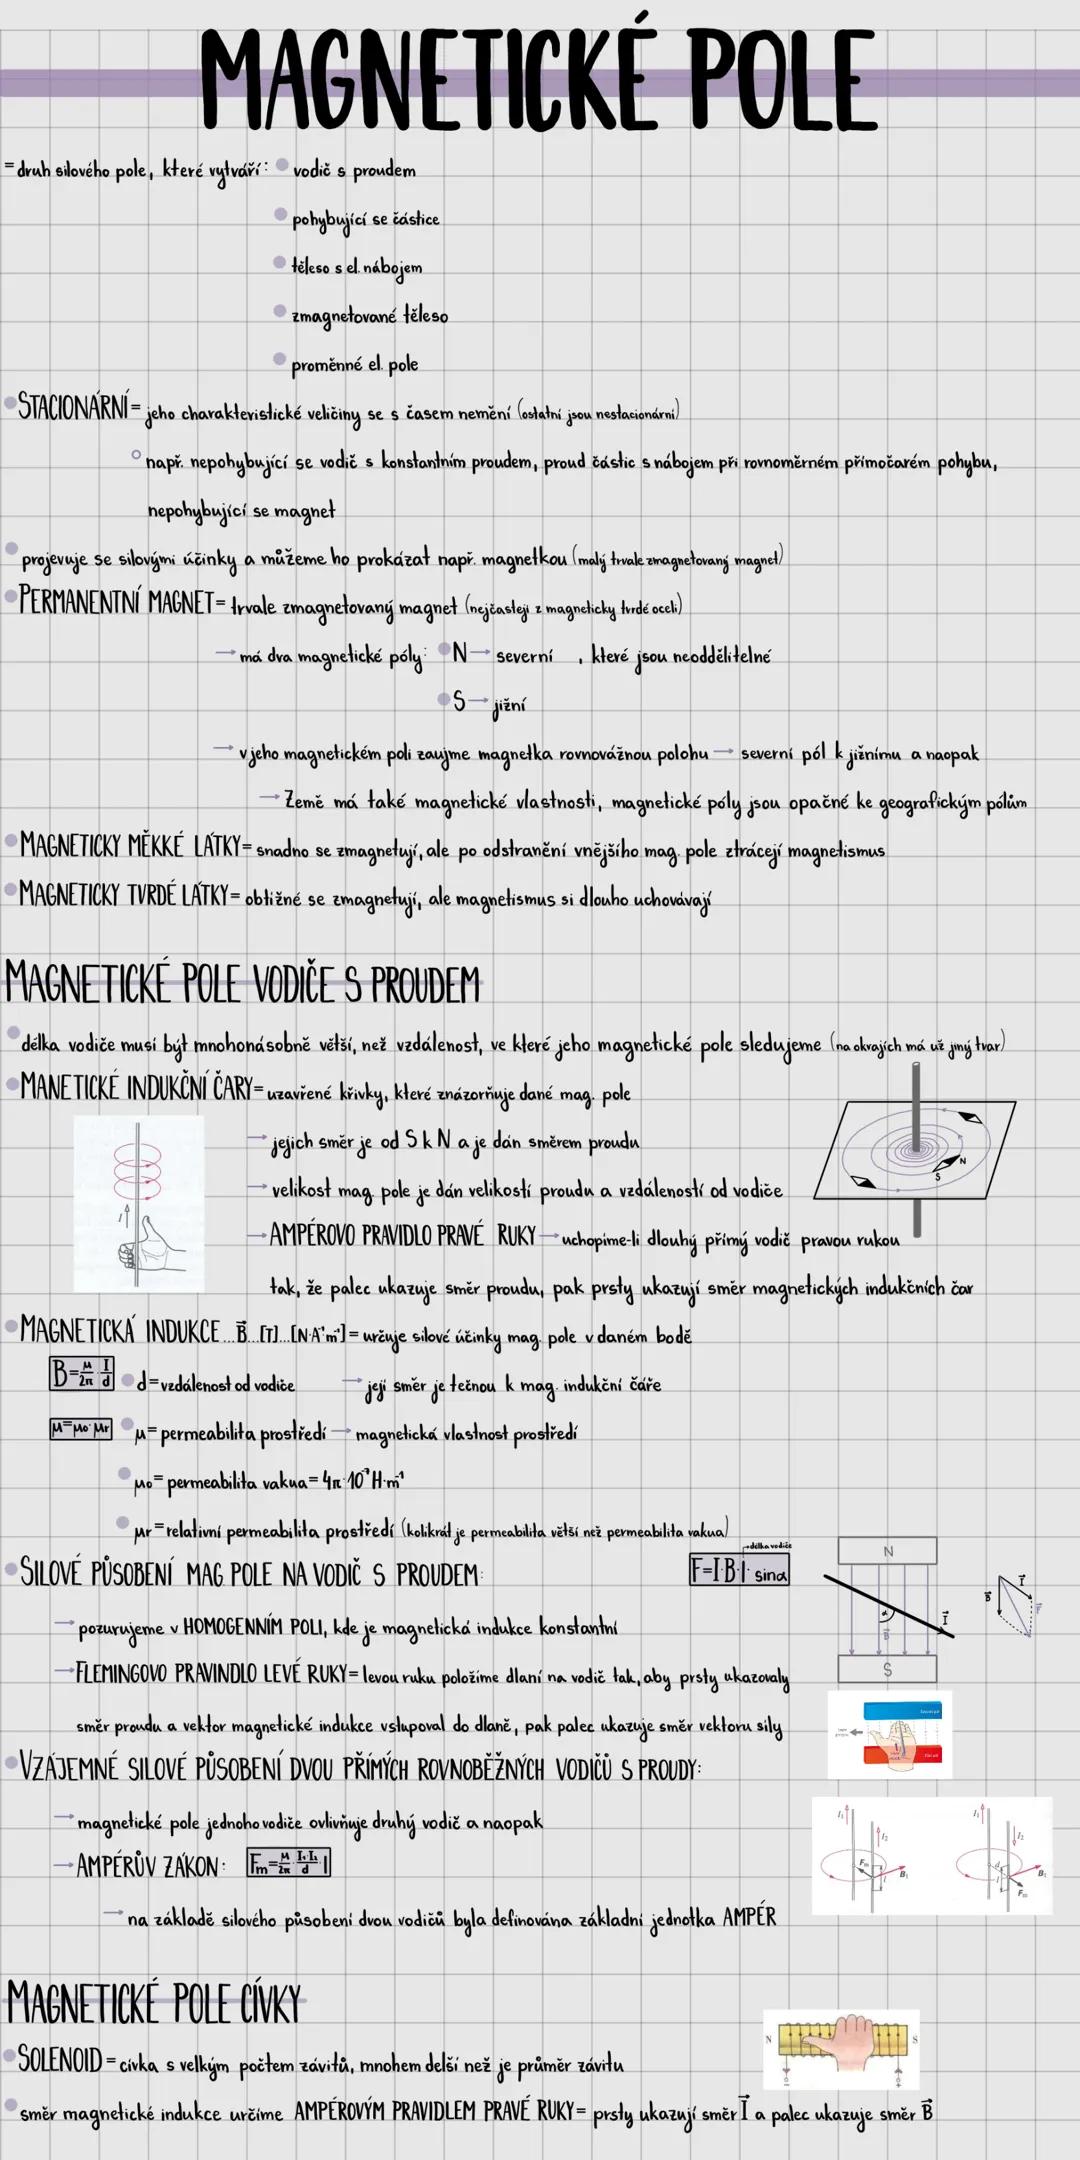 MAGNETICKÉ POLE
= druh silového pole, které vytváří: vodič s proudem
pohybující se částice
těleso s el. nábojem
zmagnetované těleso
proměnné el. pole
STACIONÁRNÍ = jeho charakteristické veličiny se s časem nemění (ostatní jsou nestacionární)
např. nepohybující se vodič s konstantním proudem, proud částic s nábojem při rovnoměrném přímočarém pohybu,
nepohybující se magnet
projevuje se silovými účinky a můžeme ho prokázat např. magnetkou (malý trvale zmagnetovaný magnet)
PERMANENTNÍ MAGNET = trvale zmagnetovaný magnet (nejčastěji z magneticky tvrdé oceli)
→ má dva magnetické póly: N → severní , které jsou neoddělitelné
S → jižní
→ v jeho magnetickém poli zaujme magnetka rovnovážnou polohu → severní pól k jižnímu a naopak
→ Země má také magnetické vlastnosti, magnetické póly jsou opačné ke geografickým pólům
MAGNETICKY MĚKKÉ LÁTKY = snadno se zmagnetují, ale po odstranění vnějšího mag. pole ztrácejí magnetismus
MAGNETICKY TVRDÉ LÁTKY = obtížné se zmagnetují, ale magnetismus si dlouho uchovávají
MAGNETICKÉ POLE VODIČE S PROUDEM
délka vodiče musí být mnohonásobně větší, než vzdálenost, ve které jeho magnetické pole sledujeme (na okrajích má už jiný tvar)
MANETICKÉ INDUKČNÍ ČARY = uzavřené křivky, které znázorňuje dané mag. pole
→ jejich směr je od S k N a je dán směrem proudu
→ velikost mag. pole je dán velikostí proudu a vzdáleností od vodiče
N
S
I
→ AMPÉROVO PRAVIDLO PRAVÉ RUKY → uchopíme-li dlouhý přímý vodič pravou rukou
tak, že palec ukazuje směr proudu, pak prsty ukazují směr magnetických indukčních čar
MAGNETICKÁ INDUKCE...B⃗...[T]...[N·A⁻¹m⁻¹] = určuje silové účinky mag. pole v daném bodě
B = μ/2π · I/d d = vzdálenost od vodiče → její směr je tečnou k mag. indukční čáře
μ = μ₀ · μr μ = permeabilita prostředí → magnetická vlastnost prostředí
μ₀ = permeabilita vakua = 4π·10⁻⁷ H·m⁻¹
μr = relativní permeabilita prostředí (kolikrát je permeabilita větší než permeabilita vakua)
SILOVÉ PŮSOBENÍ MAG. POLE NA VODIČ S PROUDEM: F = I·B·l · sinα → délka vodiče
N
α
B⃗
I⃗
S
B⃗
I⃗
F⃗
→ pozurujeme v HOMOGENNÍM POLI, kde je magnetická indukce konstantní
→ FLEMINGOVO PRAVINDLO LEVÉ RUKY = levou ruku položíme dlaní na vodič tak, aby prsty ukazovaly
směr proudu a vektor magnetické indukce vstupoval do dlaně, pak palec ukazuje směr vektoru síly
VZÁJEMNÉ SILOVÉ PŮSOBENÍ DVOU PŘÍMÝCH ROVNOBĚŽNÝCH VODIČŮ S PROUDY:
→ magnetické pole jednoho vodiče ovlivňuje druhý vodič a naopak
→ AMPÉRŮV ZÁKON: Fm = μ/2π · I₁·I₂/d · l
I₁
I₂
Fm
l
B₁
I₁
I₂
d
l
B₁
Fm
→ na základě silového působení dvou vodičů byla definována základní jednotka AMPÉR
MAGNETICKÉ POLE CÍVKY
N
S
SOLENOID = cívka s velkým počtem závitů, mnohem delší než je průměr závitu
směr magnetické indukce určíme AMPÉROVÝM PRAVIDLEM PRAVÉ RUKY = prsty ukazují směr I⃗ a palec ukazuje směr B⃗